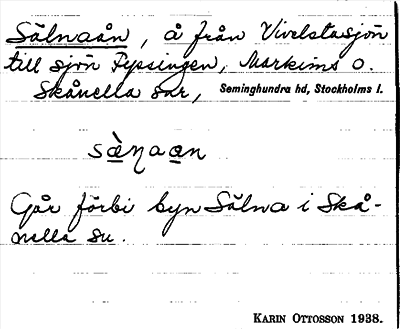 Sälnaån, å från Vivelstasjön
till sjön Fysingen, Markims o.
Skånella snr, Seminghundra hd, Stockholms l.
sä̀ṇaan
Går förbi byn Sälna i Skå-
nella sn.
KARIN OTTOSSON 1938.